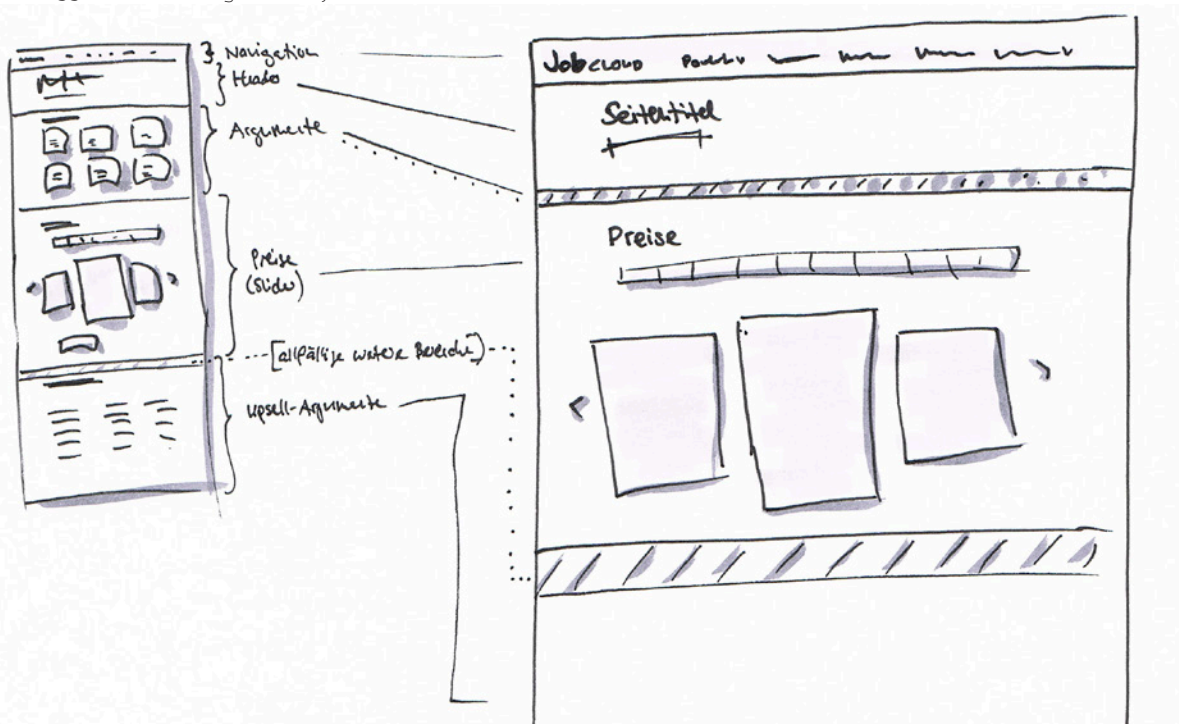 Navigation
Header
Argumente
Preise
(Slider)
[allfällige weitere Bereiche]
Upsell-Argumente
JobCLOUD
Seitentitel
Preise